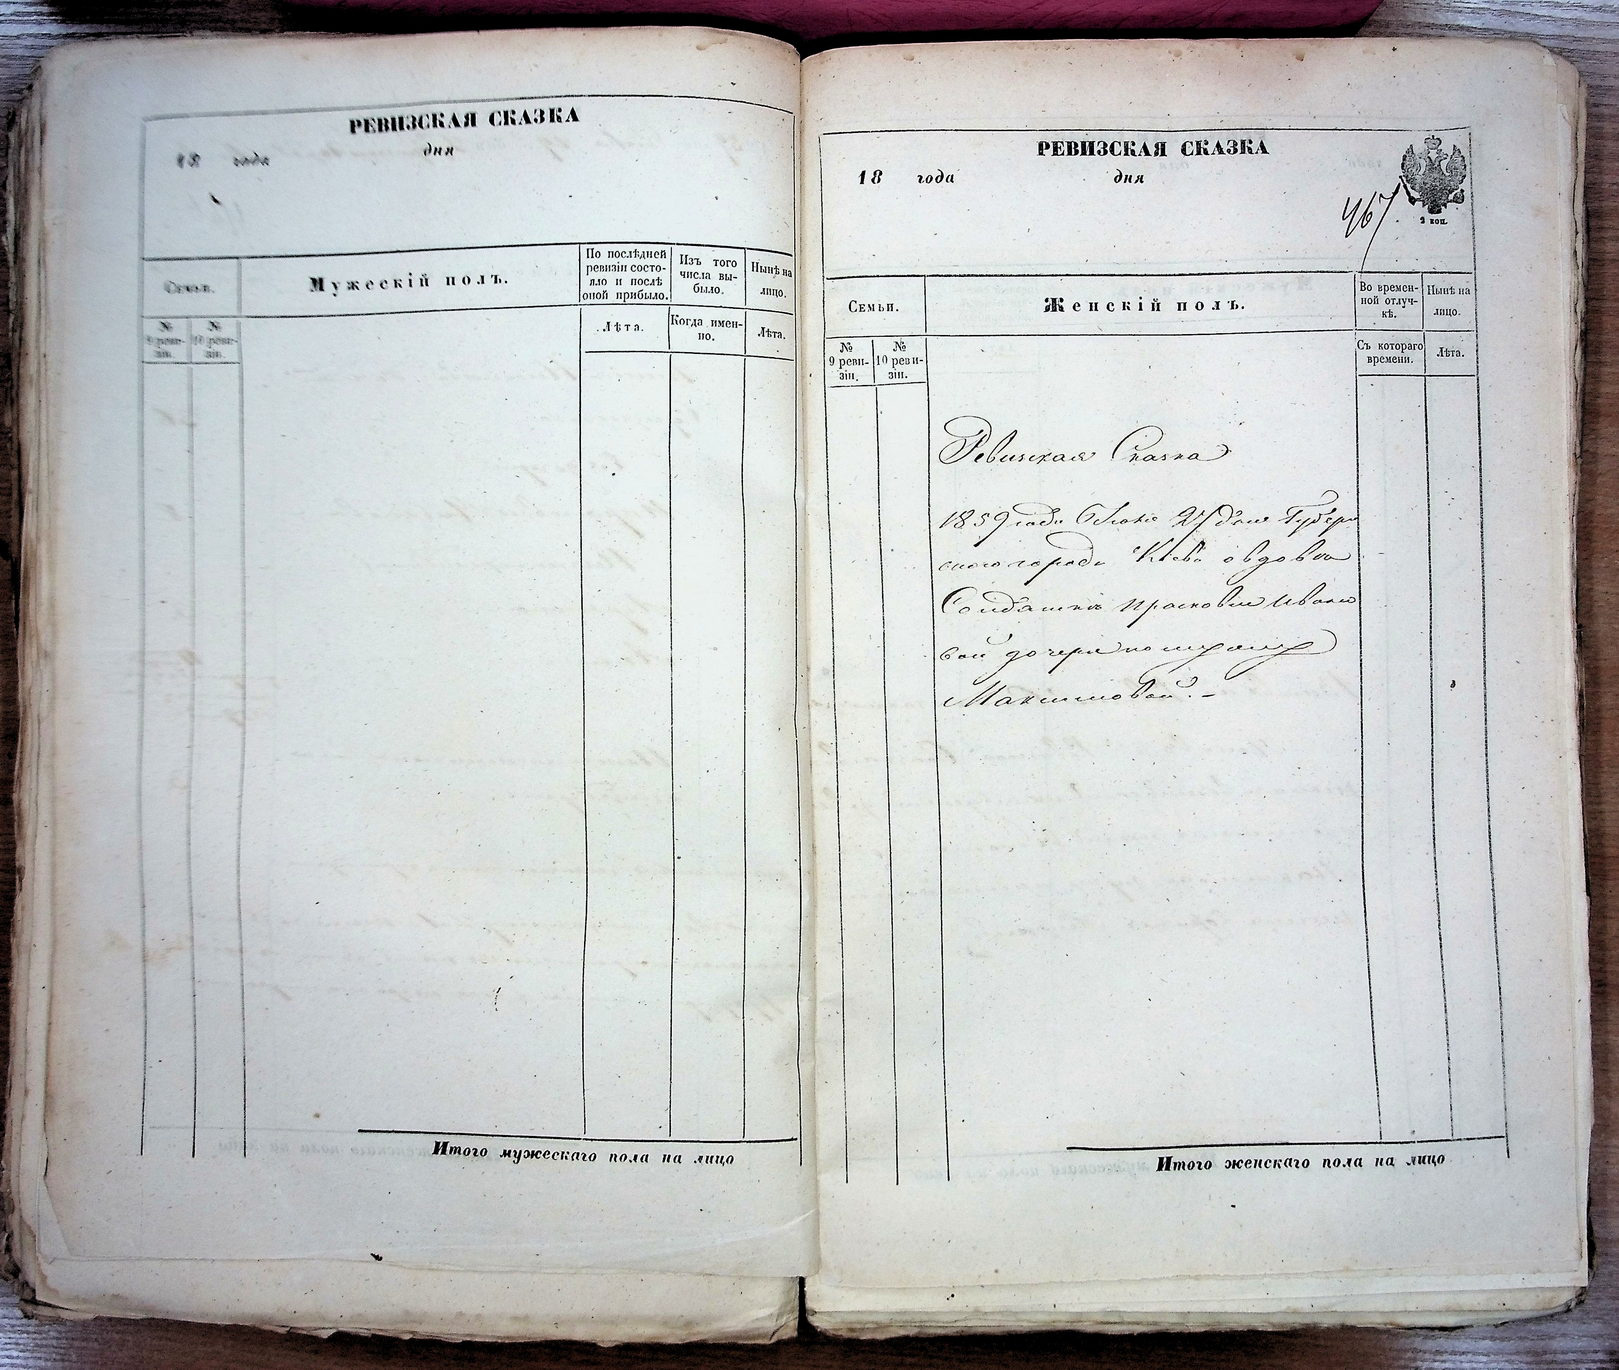 РЕВИЗСКАЯ СКАЗКА
18 года дня
Семьи.
Мужескій полъ.
По послѣдней ревизіи состо-
яло и послѣ
оной прибыло.
Изъ того
числа вы-
было.
Нынѣ на
лицо.
№
9 реви-
зіи.
№
10 реви-
зіи.
Лѣта.
Когда имен-
но.
Лѣта.
Итого мужескаго пола на лицо
РЕВИЗСКАЯ СКАЗКА
18 года дня
2 коп.
467
Семьи.
Женскій полъ.
Во времен-
ной отлуч-
кѣ.
Нынѣ на
лицо.
№
9 реви-
зіи.
№
10 реви-
зіи.
Съ котораго
времени.
Лѣта.
Ревизская Сказка
1859 года 27 дня Губерн
скаго города Кіева о вдовѣ
Солдаткѣ Прасковіи Ивано
вой дочери по мужу
Максимовой. –
Итого женскаго пола на лицо